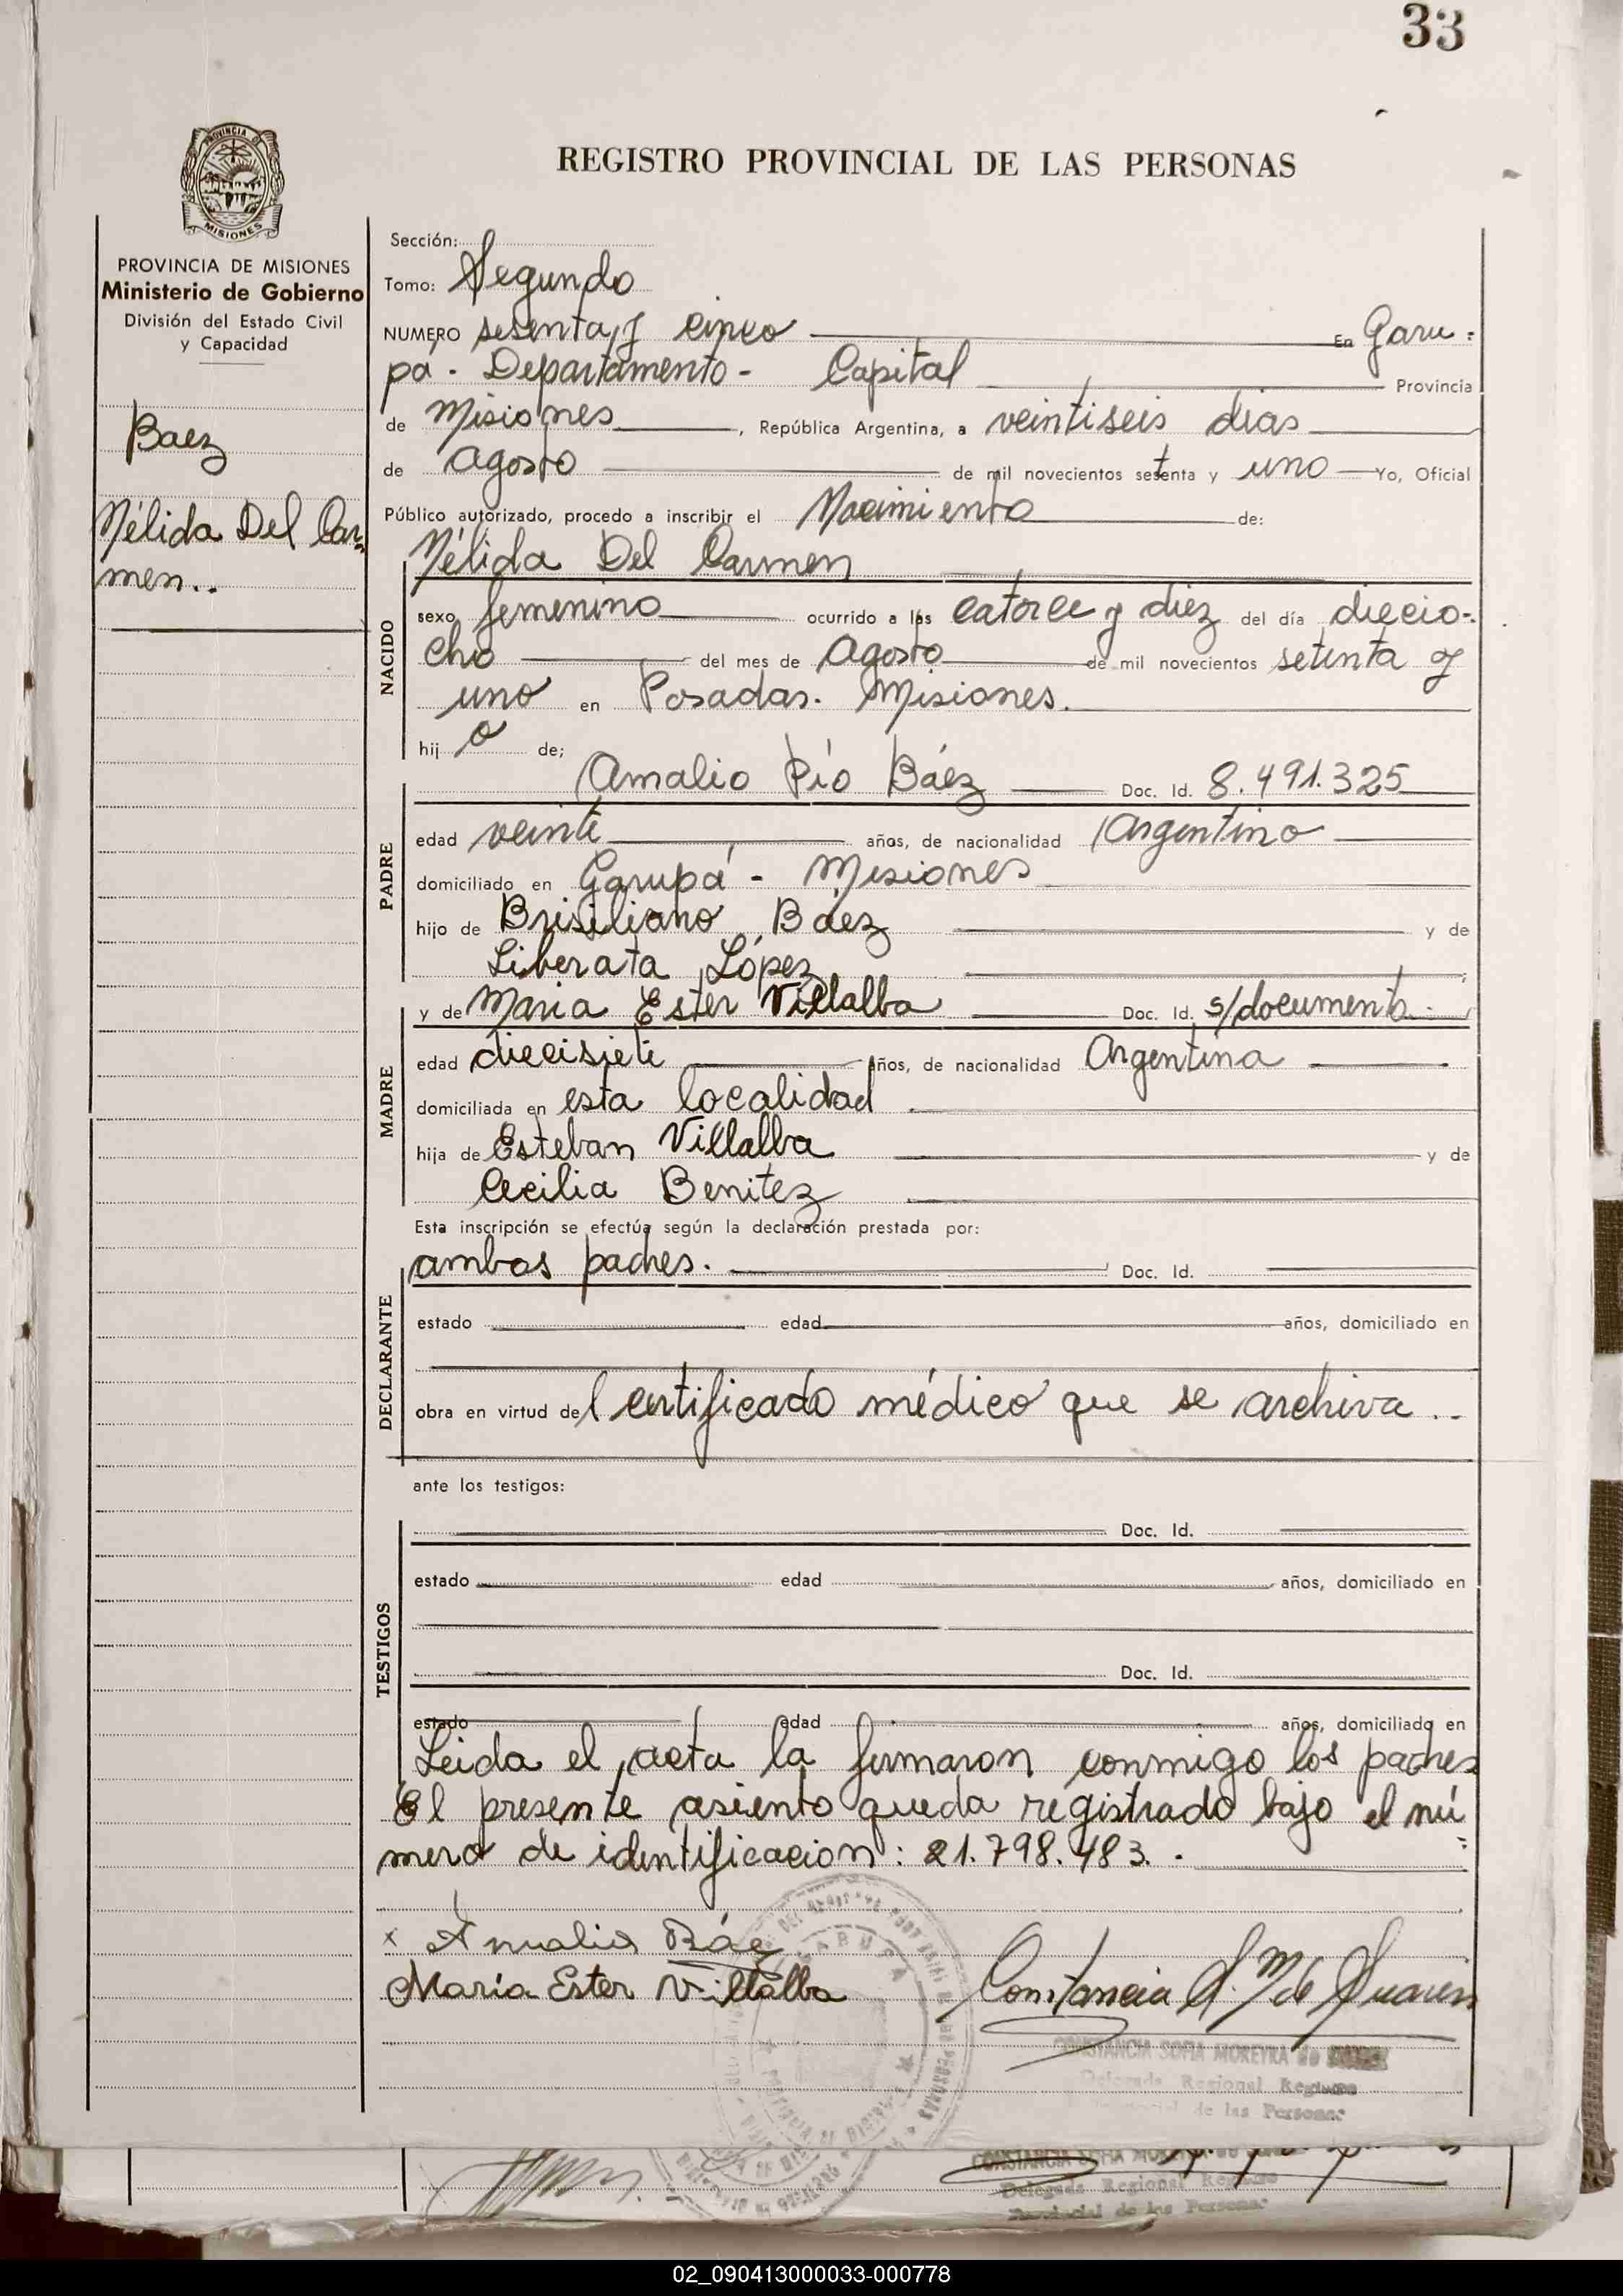 33
PROVINCIA D
MISIONES
REGISTRO PROVINCIAL DE LAS PERSONAS
PROVINCIA DE MISIONES
Ministerio de Gobierno
División del Estado Civil
y Capacidad
Baez
Nélida Del Car-
men..
Sección:
Tomo: Segundo
NUMERO sesenta y cinco En Garu=
pá - Departamento - Capital Provincia
de Misiones, República Argentina, a veintiseis dias
de Agosto de mil novecientos setenta y uno Yo, Oficial
Público autorizado, procedo a inscribir el Nacimiento de:
Nélida Del Carmen
NACIDO
sexo femenino ocurrido a las catorce y diez del día diecio-
cho del mes de Agosto de mil novecientos setenta y
uno en Posadas. Misiones.
hij a de;
PADRE
Amalio Pío Báez Doc. Id. 8.491.325
edad veinte años, de nacionalidad Argentino
domiciliado en Garupá - Misiones
hijo de Brisiliano Báez y de
Liberata López ;
MADRE
y de Maria Ester Villalba Doc. Id. s/documento.
edad diecisiete años, de nacionalidad Argentina
domiciliada en esta localidad
hija de Esteban Villalba y de
Cecilia Benitez
Esta inscripción se efectúa según la declaración prestada por:
DECLARANTE
ambos padres. Doc. Id.
estado edad años, domiciliado en
obra en virtud del certificado médico que se archiva..
ante los testigos:
TESTIGOS
Doc. Id.
estado edad años, domiciliado en
Doc. Id.
estado edad años, domiciliado en
Leida el acta la firmaron conmigo los padres
El presente asiento queda registrado bajo el nú=
mero de identificacion: 21.798.483. -
x Amalio Báez
María Ester Villalba
Constancia S. M de Suarez
GARUPA
CONSTANCIA SOFIA MOREYRA de
Delegada Regional Registro
Provincial de las Personas
CONSTANCIA SOFIA
Delegada Regional Registro
Provincial de las Personas
02_090413000033-000778